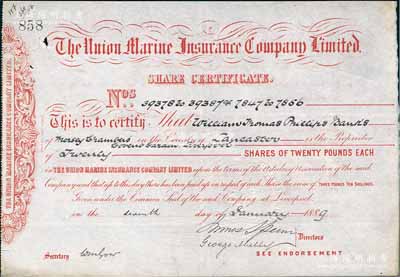 858
The Union Marine Insurance Company Limited.
SHARE CERTIFICATE.
Nos. 39378 to 39387 & 7847 to 7856
This is to certify That William Thomas Phillips Bands
of Mersey Chambers in the County of Lancaster is the Proprietor
Covent Garden Liverpool
of Twenty SHARES OF TWENTY POUNDS EACH
IN THE UNION MARINE INSURANCE COMPANY LIMITED upon the terms of the Articles of Association of the said
Company and that up to this day there has been paid up in respect of each Share the sum of THREE POUNDS TEN SHILLINGS.
Given under the Common Seal of the said Company at Liverpool
in the seventh day of January 1889
Directors
George
Secretary
SEE ENDORSEMENT
THE UNION MARINE INSURANCE COMPANY LIMITED